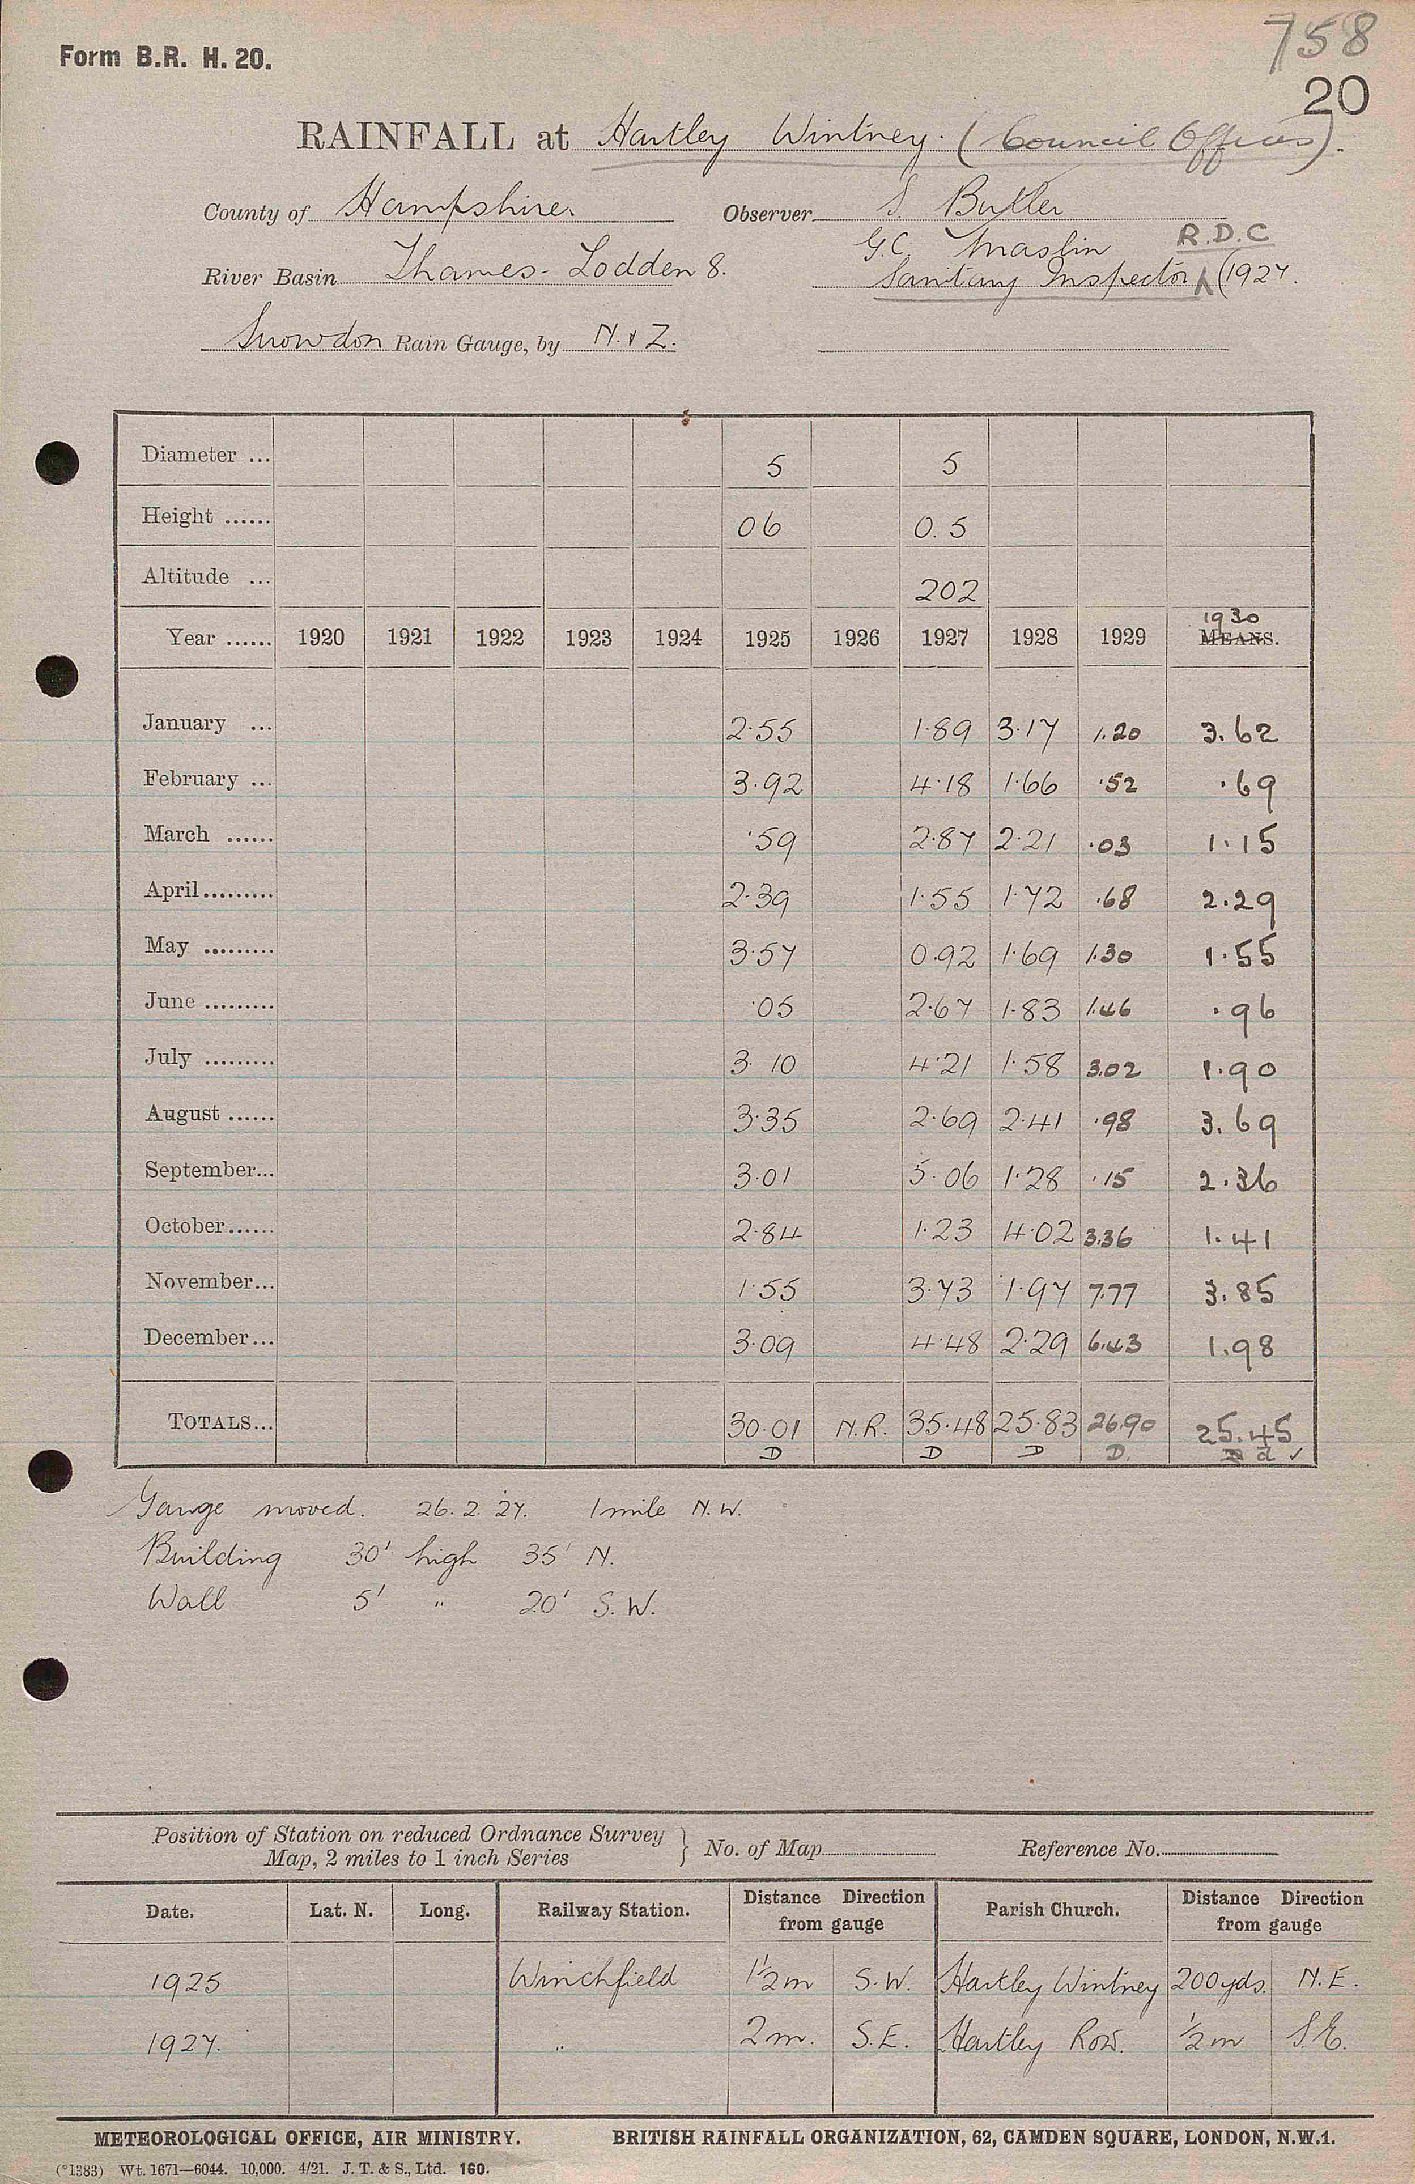 758
Form B.R. H. 20.
20
RAINFALL at Hartley Wintney. (Council Offices).
County of Hampshire. Observer S. Butler
G.C. Maslin R.D.C
River Basin Thames - Lodden 8. Sanitary Inspector (1927.
Snowdon Rain Gauge, by N. & Z.
Diameter ... 5 5
Height ...... 06 0.5
Altitude ... 202
1930
Year ...... 1920 1921 1922 1923 1924 1925 1926 1927 1928 1929 MEANS.
January ... 2.55 1.89 3.17 1.20 3.62
February ... 3.92 4.18 1.66 .52 .69
March ...... .59 2.87 2.21 .03 1.15
April......... 2.39 1.55 1.72 .68 2.29
May ......... 3.57 0.92 1.69 1.30 1.55
June ......... .05 2.67 1.83 1.46 .96
July ......... 3 10 4.21 1.58 3.02 1.90
August ...... 3.35 2.69 2.41 .98 3.69
September... 3.01 5.06 1.28 .15 2.36
October...... 2.84 1.23 4.02 3.36 1.41
November... 1.55 3.73 1.97 7.77 3.85
December... 3.09 4.48 2.29 6.43 1.98
TOTALS... 30.01 N.R. 35.48 25.83 26.90 25.45
D D D D. d ✓
Gauge moved. 26. 2. 27. 1 mile N.W.
Building 30' high 35' N.
Wall 5' " 20' S.W.
Position of Station on reduced Ordnance Survey
Map, 2 miles to 1 inch Series } No. of Map Reference No.
Date. Lat. N. Long. Railway Station. Distance Direction from gauge Parish Church. Distance Direction from gauge
1925 Winchfield 1½m S.W. Hartley Wintney 200yds. N.E.
1927. " 2m. S.E. Hartley Row. ½m S.E.
METEOROLOGICAL OFFICE, AIR MINISTRY. BRITISH RAINFALL ORGANIZATION, 62, CAMDEN SQUARE, LONDON, N.W.1.
(*1383) Wt. 1671—6044. 10,000. 4/21. J. T. & S., Ltd. 160.